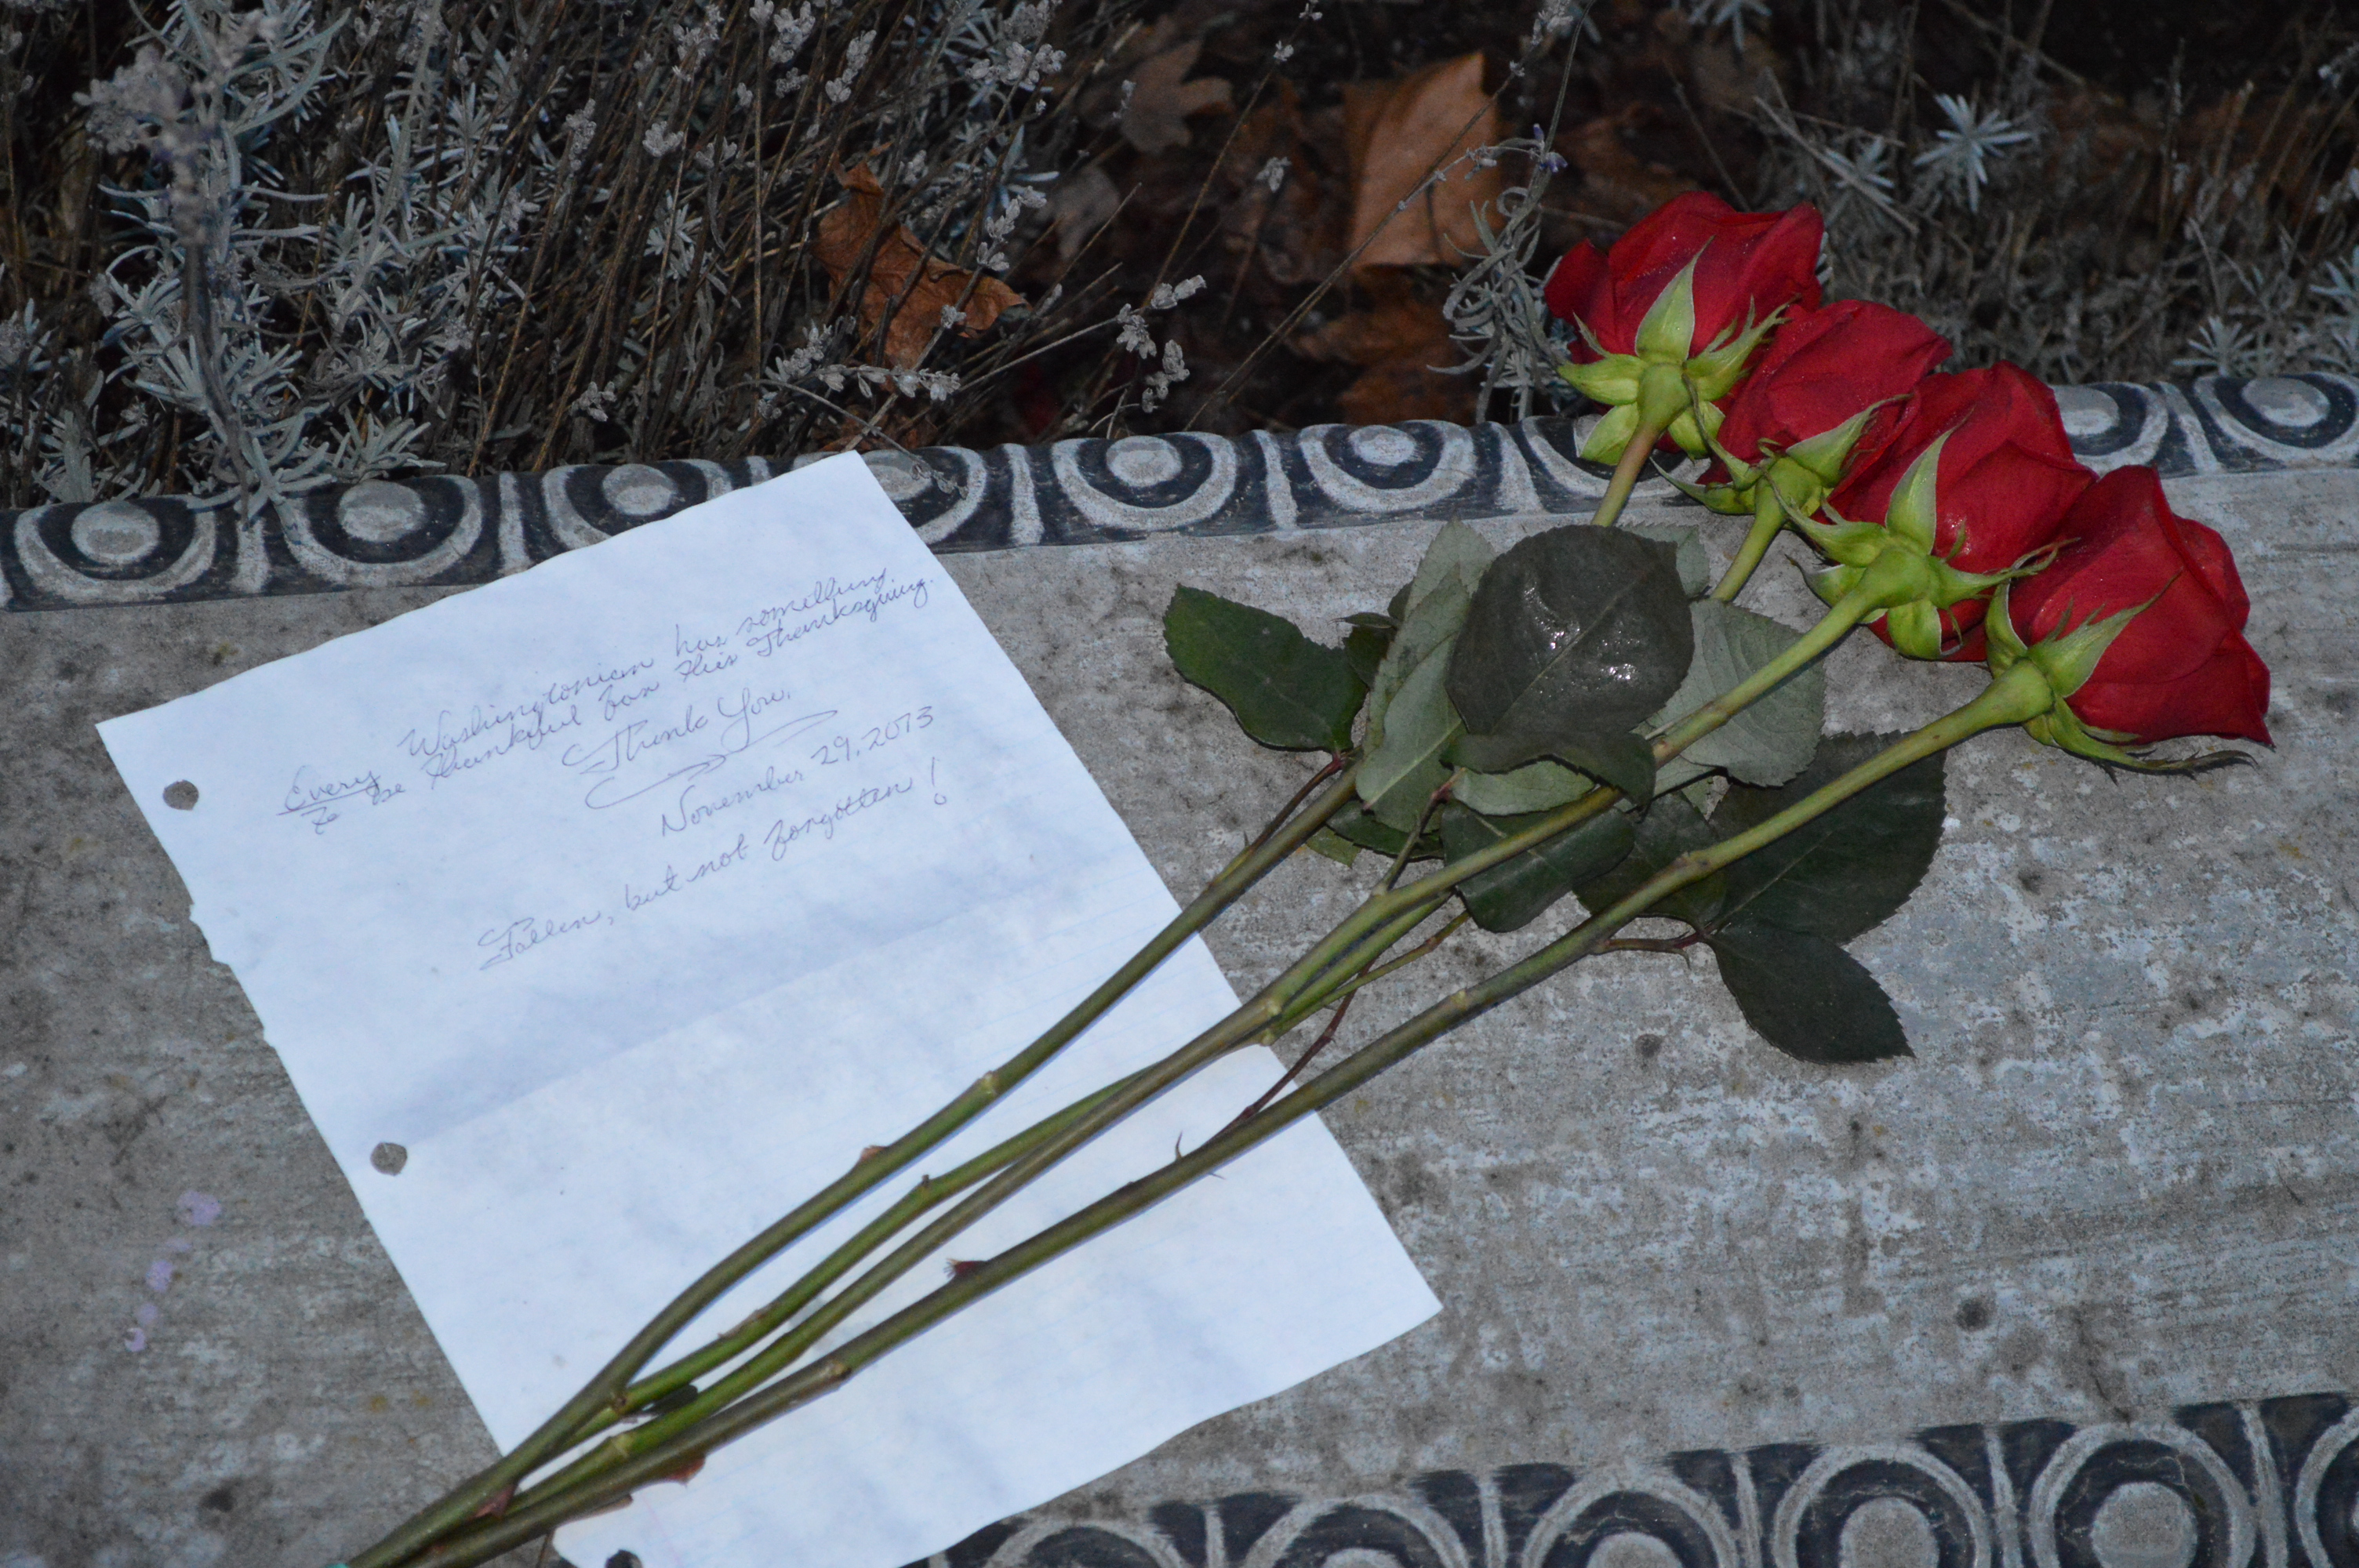 Every Washingtonian has something
to be thankful for this Thanksgiving.
Thank You.
November 29, 2013
Fallen, but not forgotten!